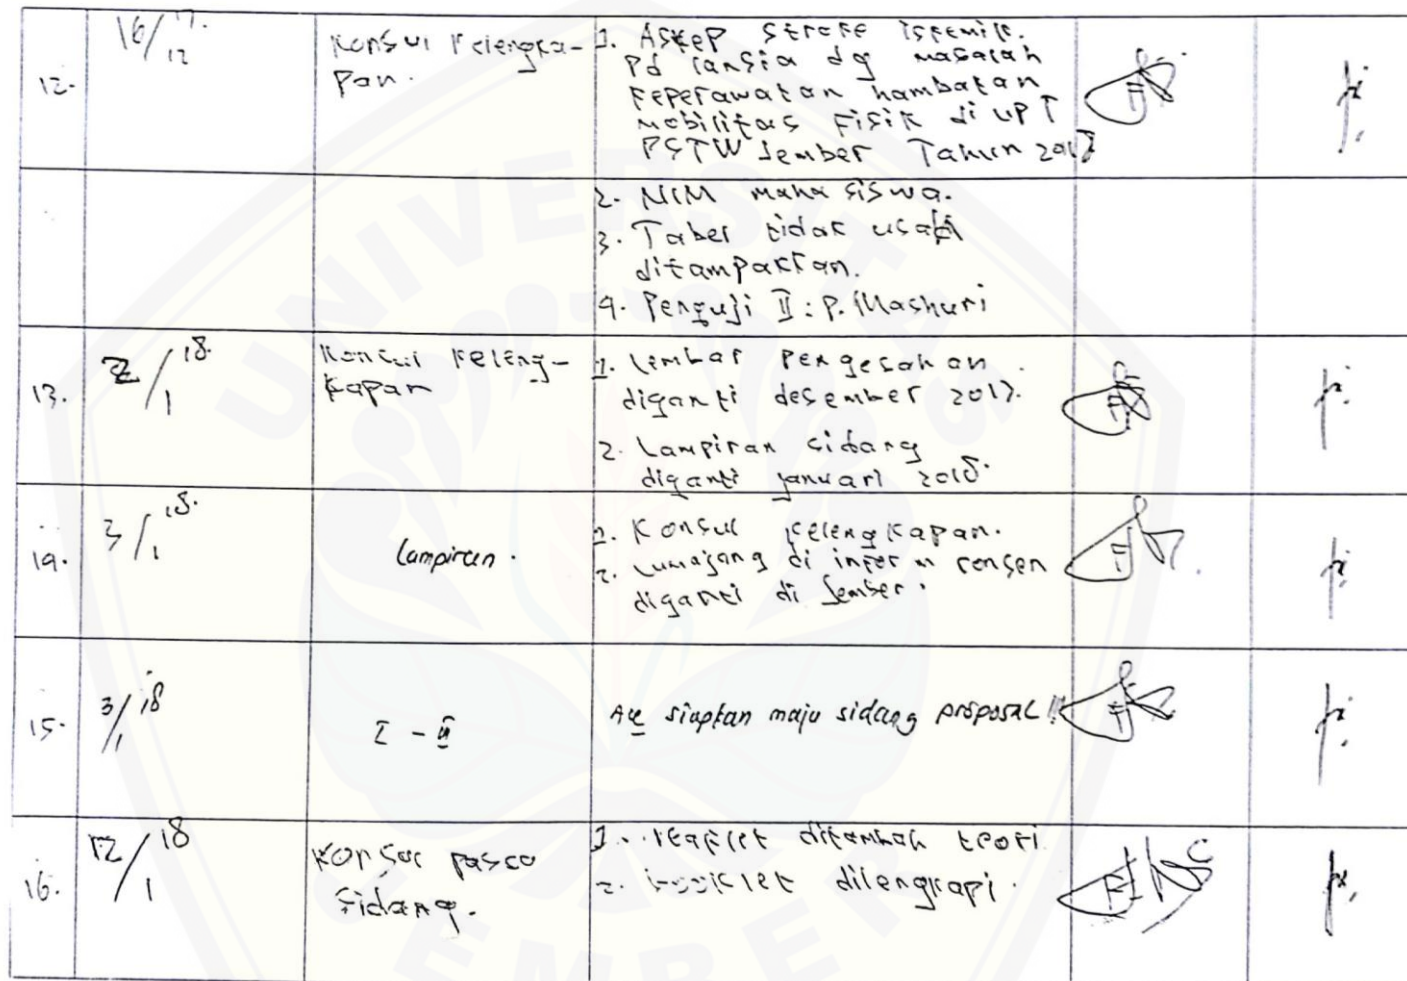 12.
16/12 17.
Konsul Kelengka-
pan.
1. Askep stroke iskemik.
Pd lansia dg masalah
keperawatan hambatan
mobilitas fisik di UPT
PSTW Jember Tahun 2017
2. NIM mahasiswa.
3. Tabel tidak usah
ditampakkan.
4. Penguji II : P. Mashuri
13.
2/1 18.
Konsul keleng-
kapan
1. Lembar pengesahan
diganti desember 2017.
2. Lampiran sidang
diganti januari 2018.
14.
3/1 18.
Lampiran.
1. Konsul kelengkapan.
2. Lumajang di inform consen
diganti di Jember.
15.
3/1 18
I - II
siapkan maju sidang proposal !!!
16.
12/1 18
Konsul pasca
sidang.
1. leaflet ditambah teori
2. booklet dilengkapi.
UNIVERSITAS
JEMBER